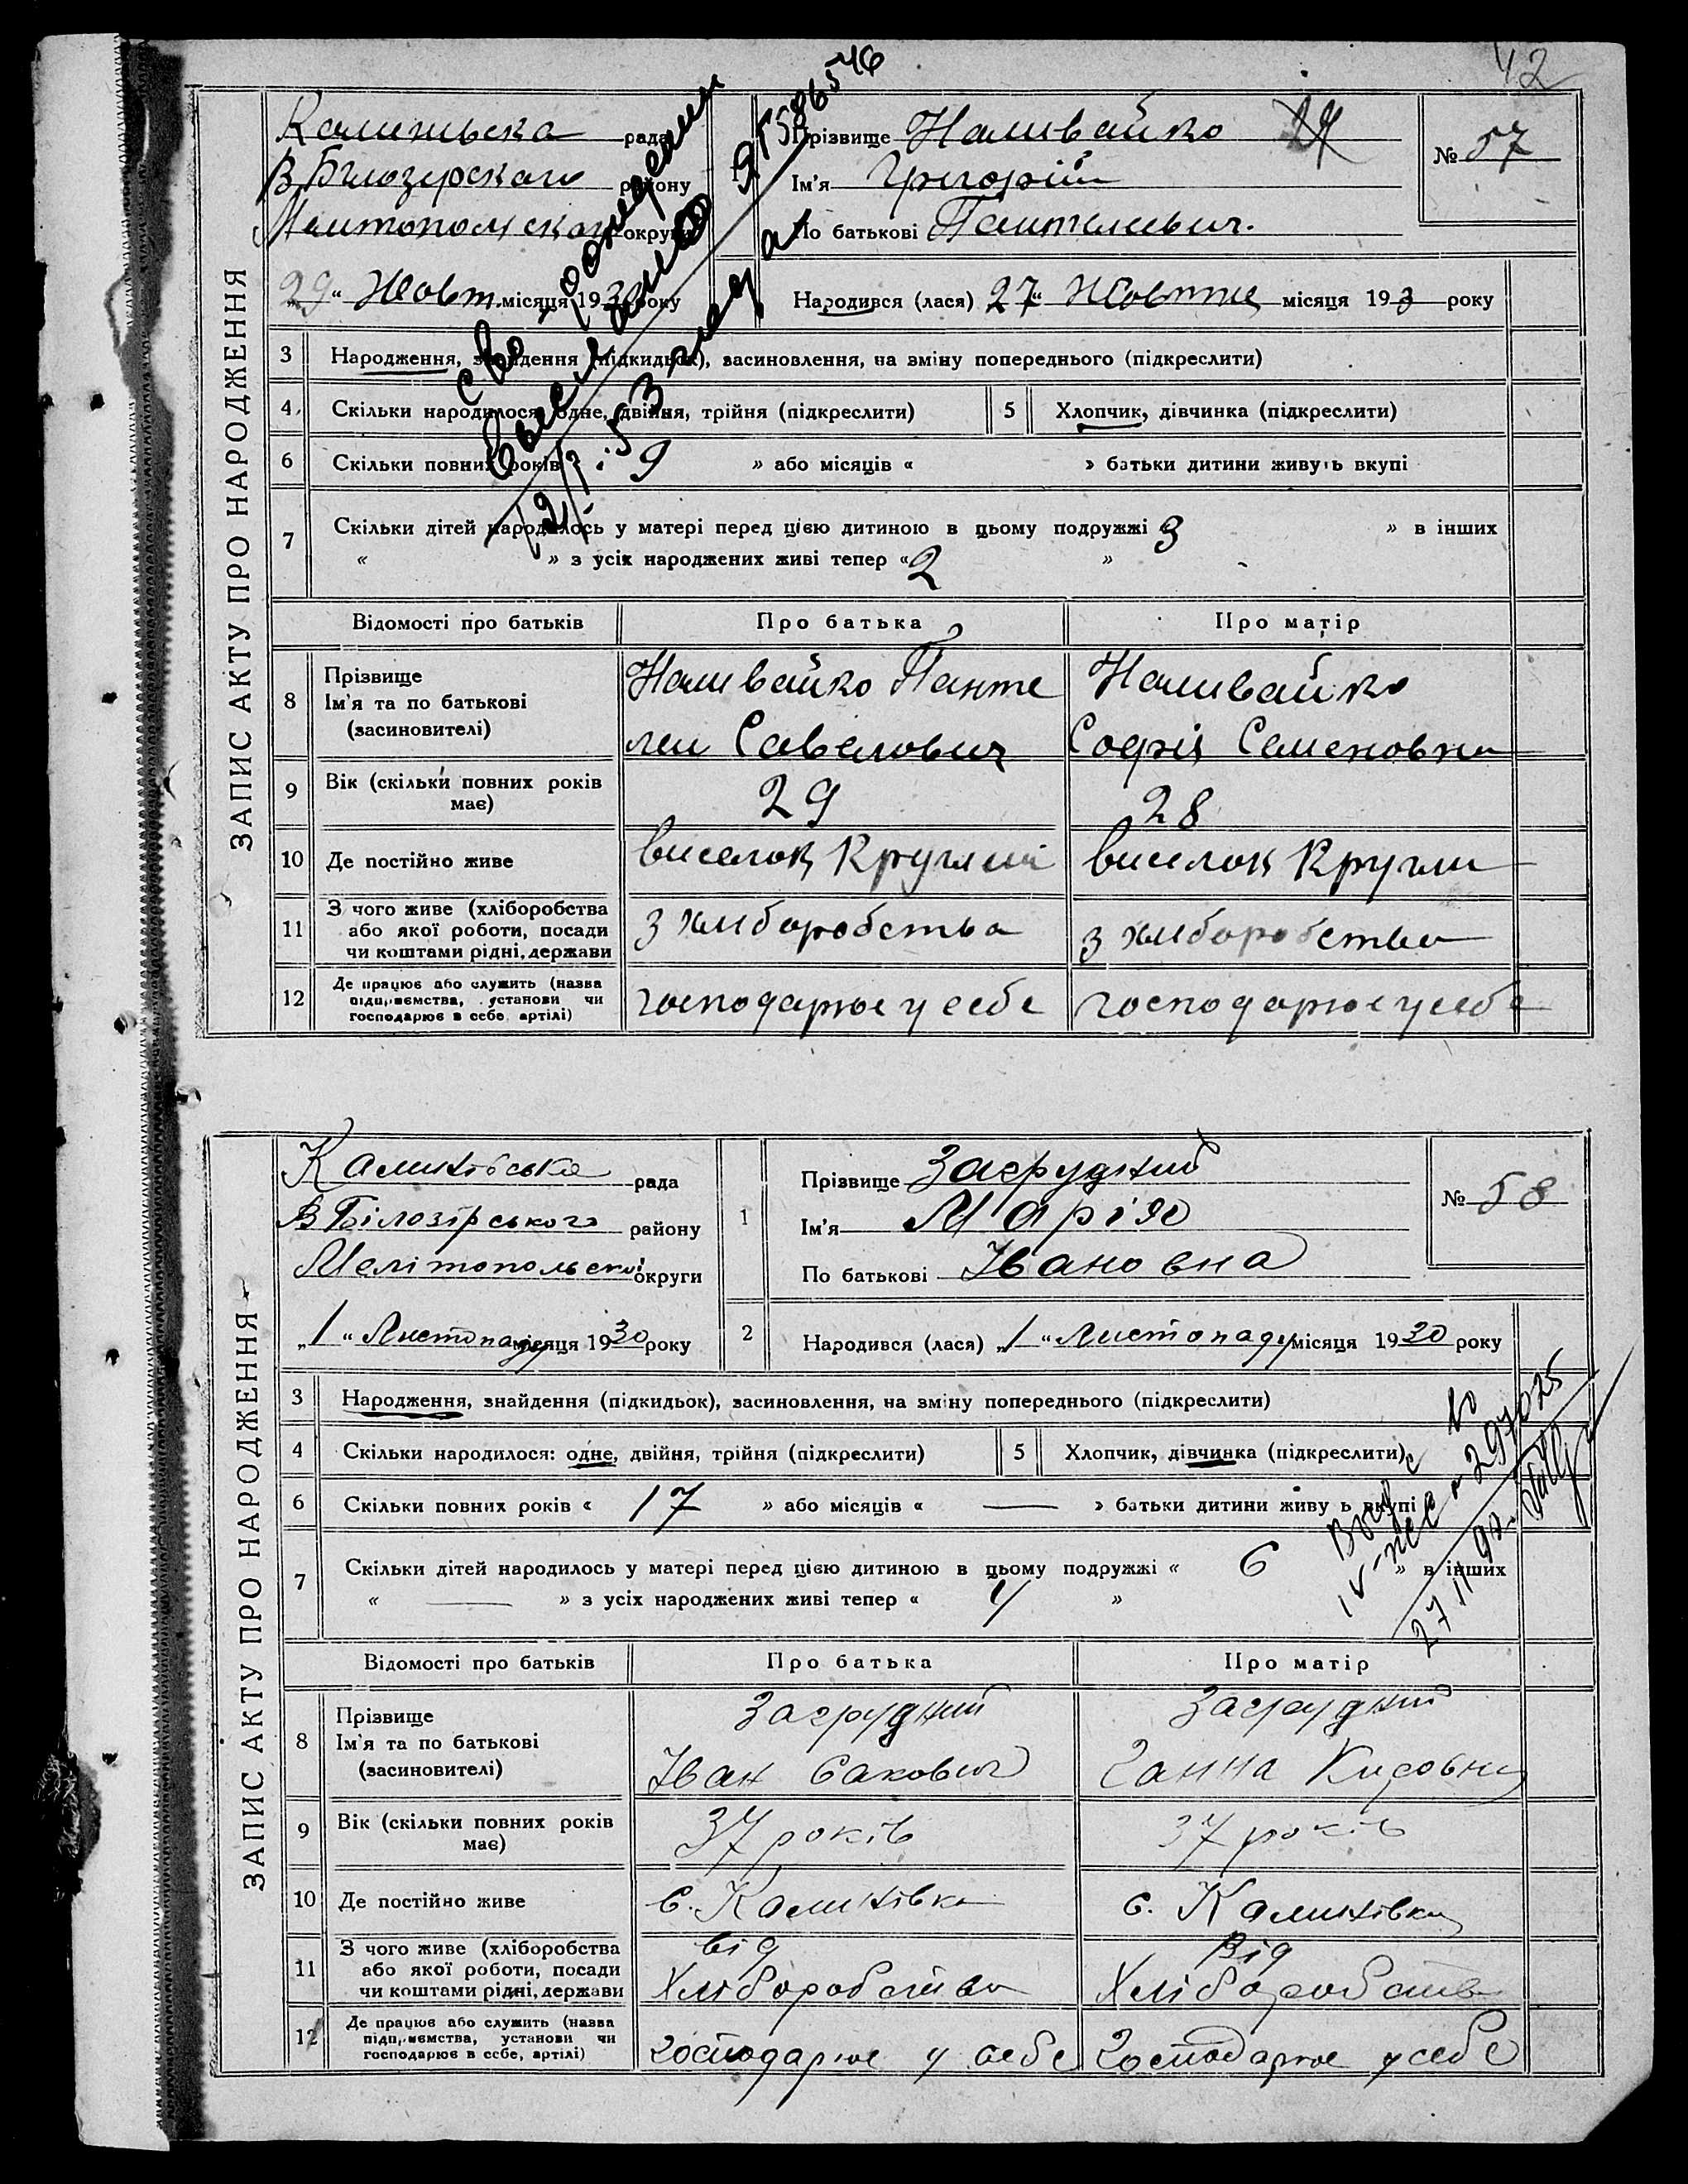 42
ЗАПИС АКТУ ПРО НАРОДЖЕННЯ
рада
В Білозерскаго району
округи
Прізвище Наливайко
Ім'я Григорій
По батькові Пантелеьвич.
№ 57
29 " Жовт. місяця 1930 року
Народився (лася) 27 " Жовтня місяця 193 року
3 Народження, знайдення (підкидьок), засиновлення, на зміну попереднього (підкреслити)
4. Скільки народилося: одне, двійня, трійня (підкреслити)
5 Хлопчик, дівчинка (підкреслити)
6 Скільки повних років 9 » або місяців « » батьки дитини живуть вкупі
7 Скільки дітей народилось у матері перед цією дитиною в цьому подружжі « 3 » в інших
« » з усіх народжених живі тепер « 2 »
Відомості про батьків Про батька Про матір
8 Прізвище Ім'я та по батькові (засиновителі)
Наливайко Панте
леи Савелович
Наливайко
Софія Семеновна
9 Вік (скільки повних років має) 29 28
10 Де постійно живе виселок Круглий виселок Кругли
11 З чого живе (хліборобства або якої роботи, посади чи коштами рідні, держави з хліборобства з хліборобства
12 Де працює або служить (назва підприємства, установи чи господарює в себе, артілі) господарює у себе господарює у себе
св о рождении
выслано
ЗАПИС АКТУ ПРО НАРОДЖЕННЯ
Калинівська рада
В Білозірського району
Мелітопольської округи
1 Прізвище Загрудний
Ім'я Марія
По батькові Івановна
№ 58
„1" Листопаду місяця 1930 року
2 Народився (лася) „1" Листопаду місяця 1930 року
3 Народження, знайдення (підкидьок), засиновлення, на зміну попереднього (підкреслити)
4 Скільки народилося: одне, двійня, трійня (підкреслити)
5 Хлопчик, дівчинка (підкреслити)
6 Скільки повних років « 17 » або місяців « — » батьки дитини живу ь вкупі
7 Скільки дітей народилось у матері перед цією дитиною в цьому подружжі « 6 » в інших
« — » з усіх народжених живі тепер « 4 »
297025
Відомості про батьків Про батька Про матір
8 Прізвище Ім'я та по батькові (засиновителі)
Загрудний
Іван Сакович
Загрудний
Ганна
9 Вік (скільки повних років має) 37 років 37 років
10 Де постійно живе с. Калинівка с. Калинівка
11 З чого живе (хліборобства або якої роботи, посади чи коштами рідні, держави від Хліборобства від Хліборобства
12 Де працює або служить (назва підприємства, установи чи господарює в себе, артілі) господарює у себе Господарює у себе